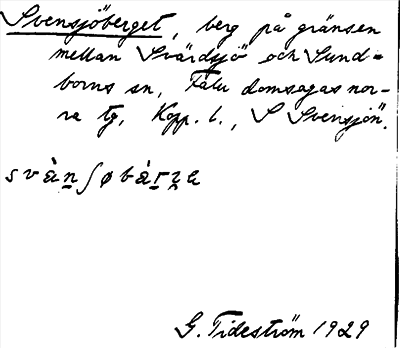 Svensjöberget, berg på gränsen
mellan Svärdsjö och Sund=
borns sn, Falu domsagas nor-
ra tg, Kopp. l., S Svensjön.
svän̠ʃøbär̠z̠e
G. Tideström 1929